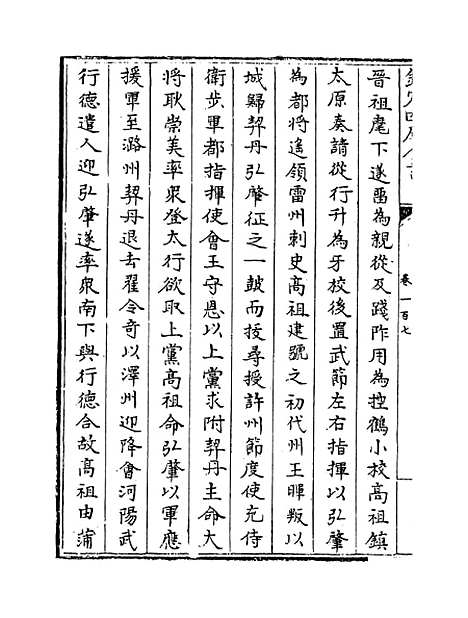 欽定四庫全書
卷一百七
晉祖麾下遂畱為親從及踐阼用為控鶴小校高祖鎮
太原奏請從行升為牙校後置武節左右指揮以弘肇
為都將遙領雷州刺史高祖建號之初代州王暉叛以
城歸契丹弘肇征之一鼓而拔尋授許州節度使充侍
衛步軍都指揮使會王守恩以上黨求附契丹主命大
將耿崇美率衆登太行欲取上黨高祖命弘肇以軍應
援軍至潞州契丹退去翟令奇以澤州迎降會河陽武
行德遣人迎弘肇遂率衆南下與行德合故高祖由蒲